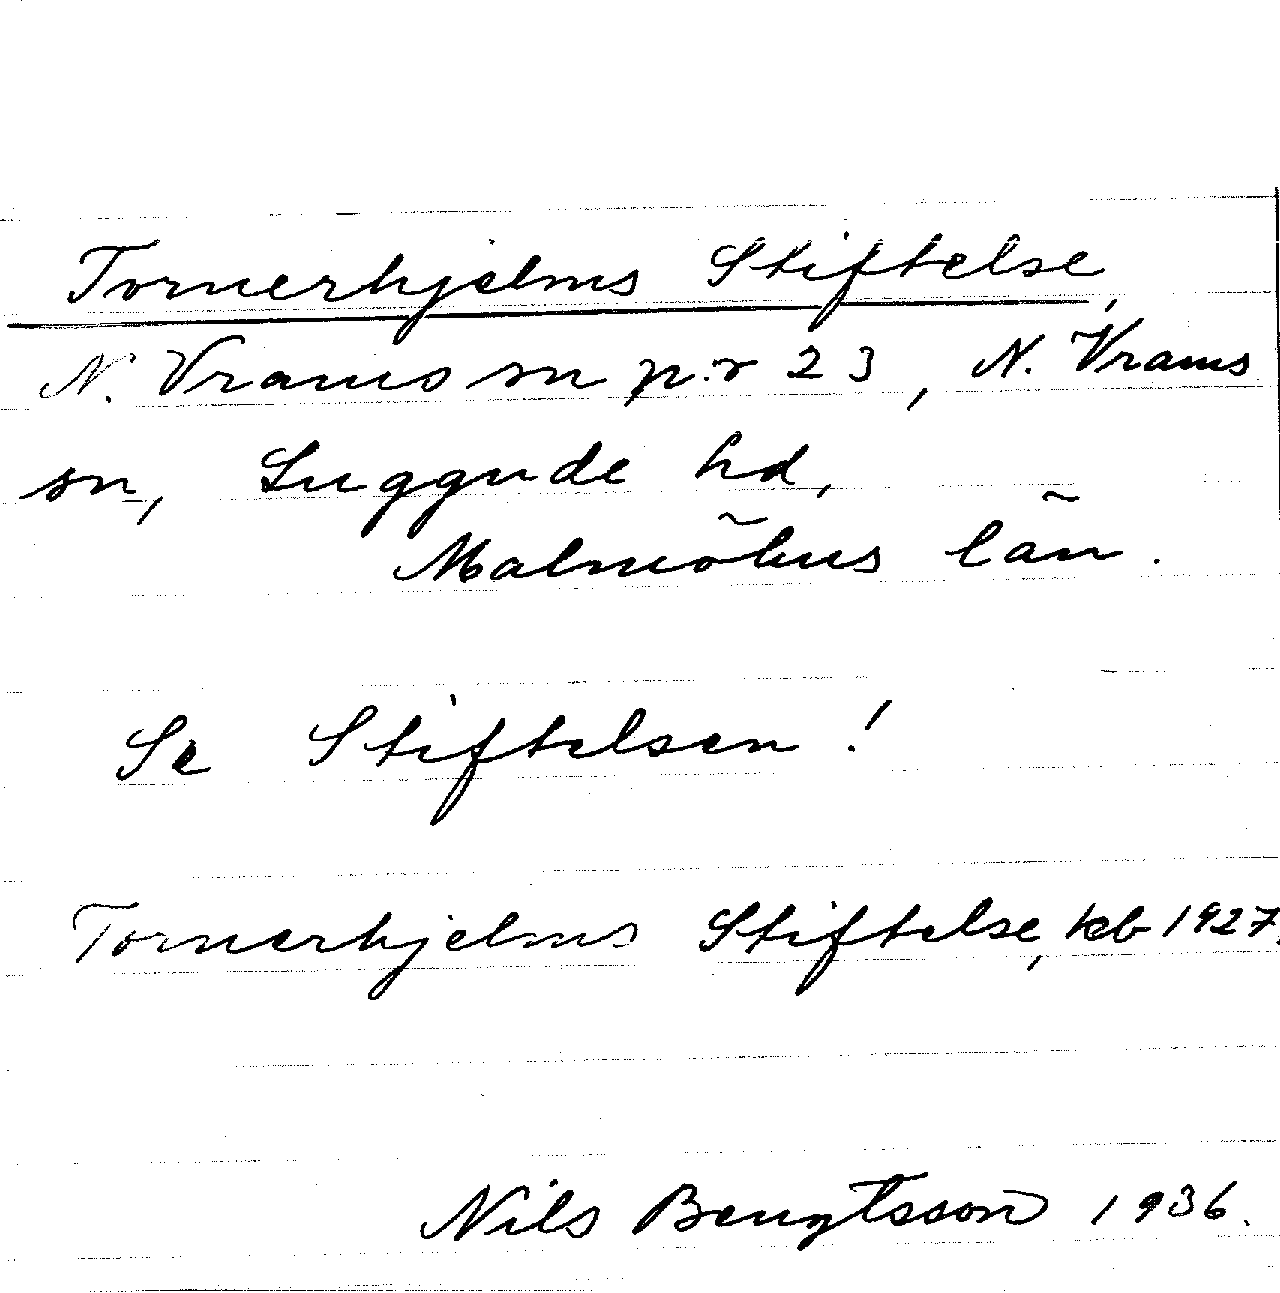 Tornerhjelms Stiftelse,
N. Vrams sn p:r 23, N. Vrams
sn, Luggude hd,
Malmöhus län.
Se Stiftelsen!
Tornerhjelms Stiftelse, kb 1927.
Nils Bengtsson 1936.